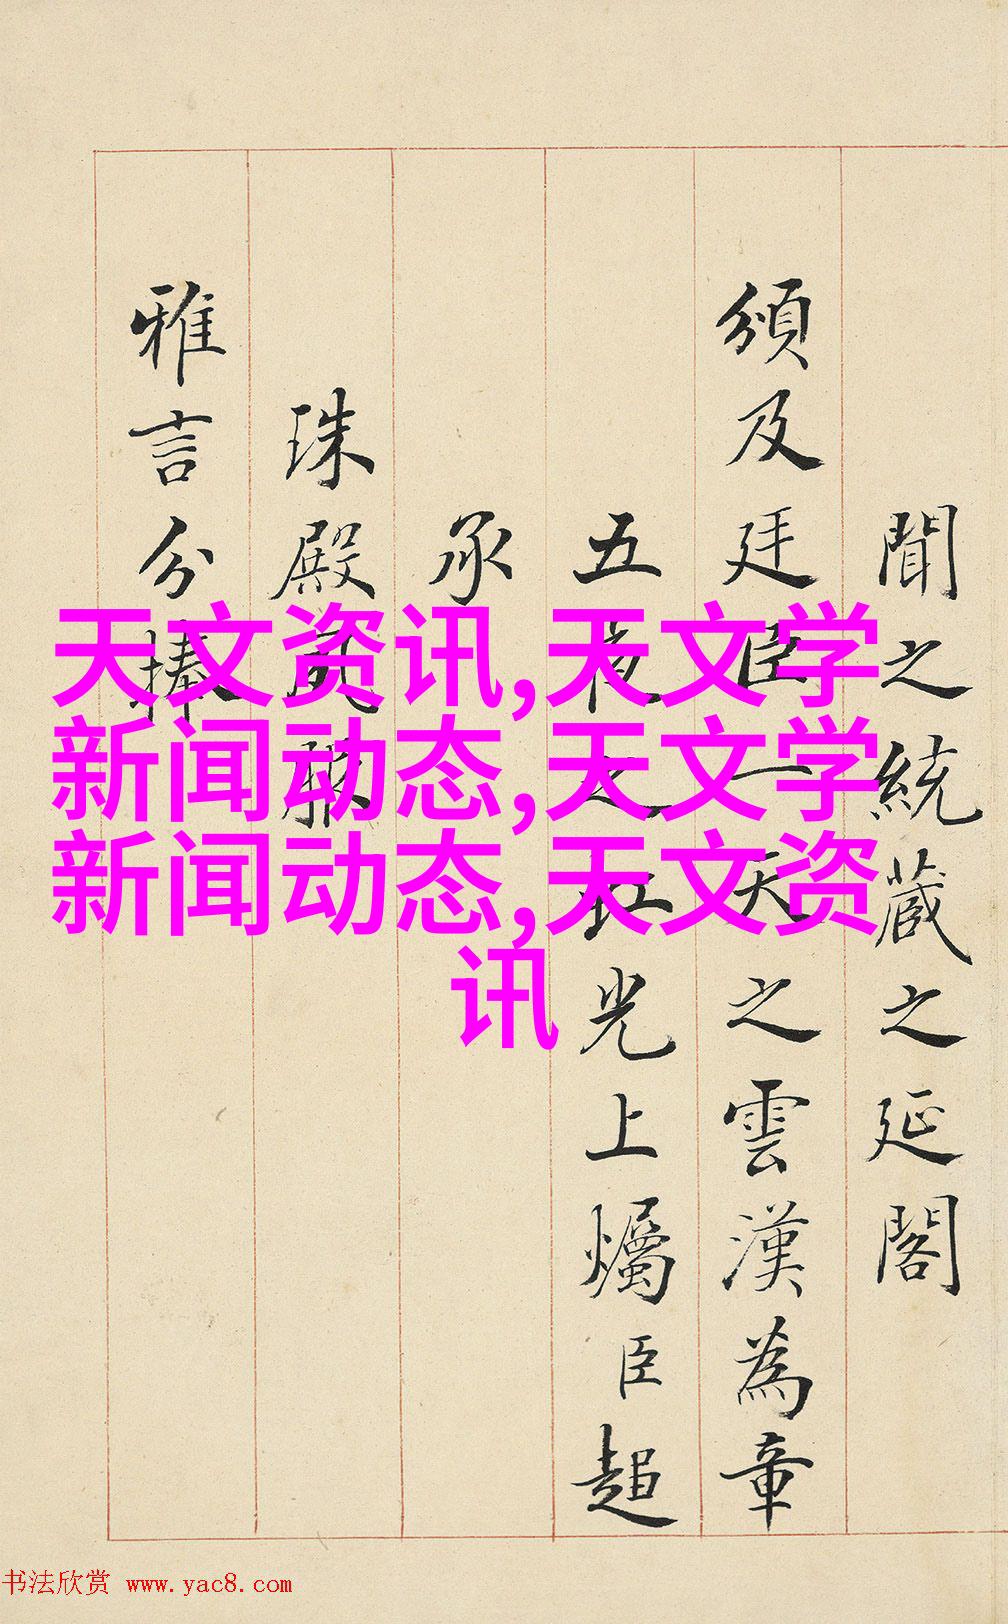 聞之統蔵之延閣
頒及廷臣一天之雲漢為章
五夜之虹光上爥臣超
承
珠殿
雅言分捧
天文资讯,天文学
新闻动态,天文学
新闻动态,天文资
讯
书法欣赏 www.yac8.com